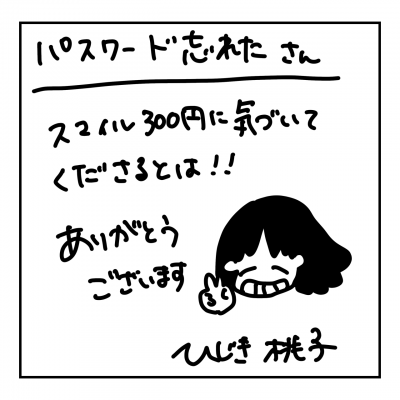 パスワード忘れた さん
スマイル300円に気づいて
くださるとは!!
ありがとう
ございます
ひじき 桃子